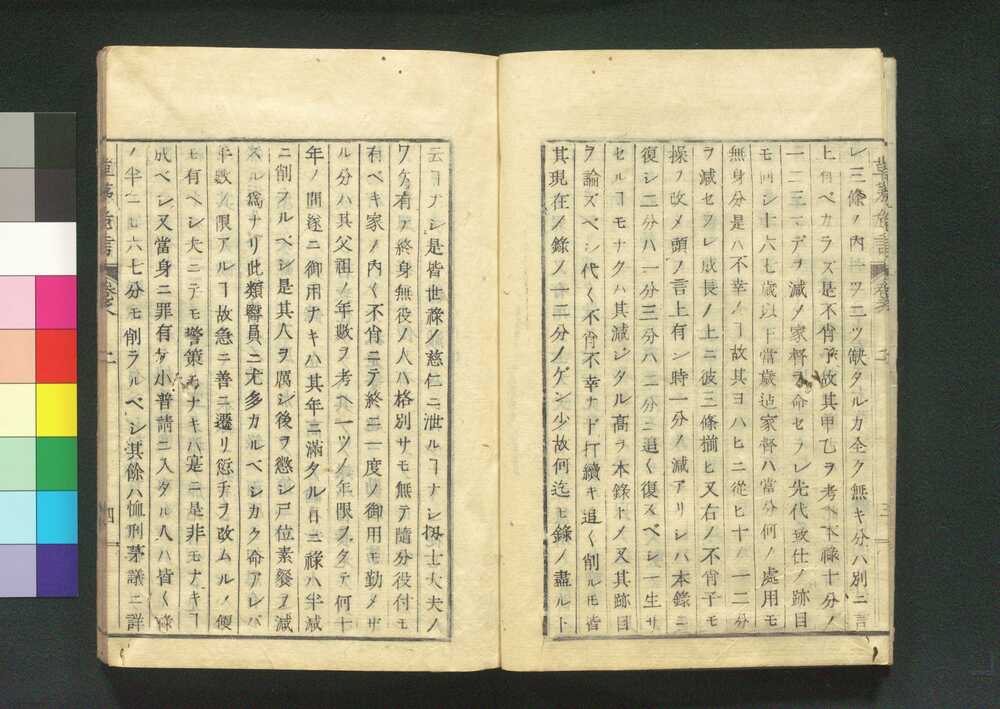 レ三條ノ内一ツ二ツ缺タルカ全ク無キ分ハ別ニ言
上有ベカラズ是不肖子故其甲乙ヲ考ヘ本祿十分ノ
一二三マデヲ減メ家督ヲ命セラレ先代致仕ノ跡目
モ同シ十六七歳以下當歳迠家督ハ當分何ノ處用モ
無身分是ハ不幸ノヿ故其ヨハヒニ從ヒ十ノ一二分
ヲ減セラレ成長ノ上ニ彼三條揃ヒ又右ノ不肖子モ
操ヲ改メ頭ノ言上有ン時一分ノ減アリシハ本錄ニ
復シ二分ハ一分三分ハ二分ニ追々復スベシ一生サ
セルヿモナクハ其減シタル高ヲ本錄トメ又其跡目
ヲ論ズベシ代々不肖不幸ナド打續キ追々削ルモ皆
其現在ノ錄ノ一二三分ノゲン少故何迄モ錄ノ盡ルト
云ヿナシ是皆世祿ノ慈仁ニ泄ルヿナシ扨士大夫ノ
ワケ有テ終身無役ノ人ハ格別サモ無テ隨分役付モ
有ベキ家ノ内々不肖ニテ終ニ一度ノ御用モ勤メザ
ル分ハ其父祖ノ年數ヲ考ヘ一ツノ年限ヲタテ何十
年ノ間遂ニ御用ナキハ其年ニ滿タル日ニ祿ハ半減
ニ削ラルベシ是其人ヲ厲シ後ヲ懲シ尸位素餐ヲ減
スル爲ナリ此類擧員ニ尤多カルベシカク命アレバ
年數ノ限アルヿ故急ニ善ニ遷リ愆チヲ改ムルノ便
モ有ベシ夫ニテモ警策モナキハ寔ニ是非モナキヿ
成ベシ又當身ニ罪有ケ小普請ニ入タル人ハ皆々祿
ノ半ニモ六七分モ削ラルベシ其餘ハ恤刑茅議ニ詳
草茅危言
卷之
二
三
草茅危言
卷之
二
四